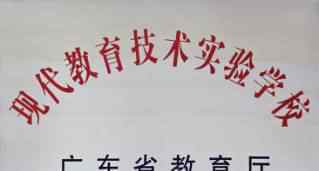 现代教育技术实验学校
广东省教育厅